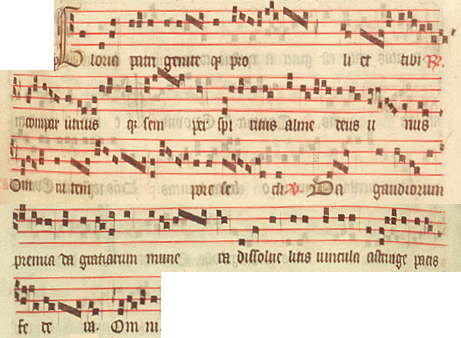 Gloria patri genite qz pro li et tibi R.
compar utrius qz sem per spi ritus alme deus u nus
Om ni teng pre se ch V. Da gaudiorum
premia da gratiarum mune ra dissolue litis uincula astringe pacis
fe de ra. Om ni.